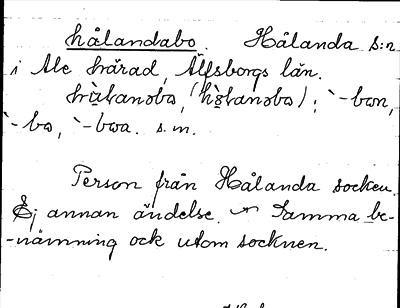 hålandabo. Hålanda s:n
i Ale härad, Älfsborgs län.
`-bon,
`-bo, `-boa. s. m.
Person från Hålanda socken.
Ej annan ändelse. Samma be-
-nämning ock utom socknen.